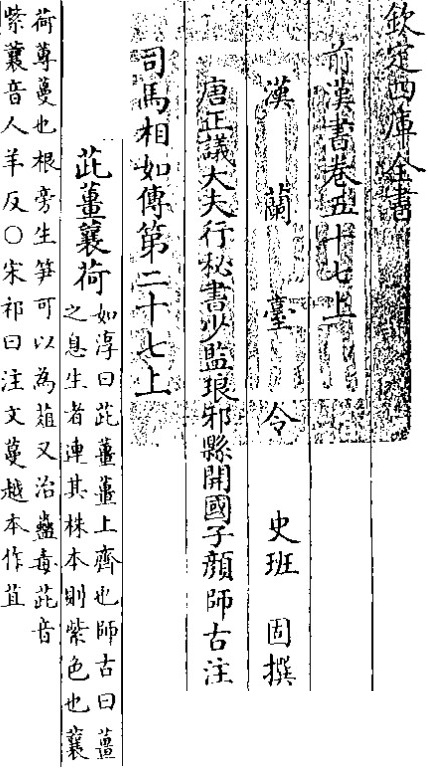 欽定四庫全書
前漢書卷五十七上
漢蘭臺令史班固撰
唐正議大夫行秘書少監琅邪縣開國子顏師古注
司馬相如傳第二十七上
茈薑蘘荷
如淳曰茈薑薑上齊也師古曰薑
之息生者連其株本則紫色也蘘
荷蓴蔓也根旁生笋可以為葅又治蠱毒茈音
紫蘘音人羊反○宋祁曰注文蔓越本作苴